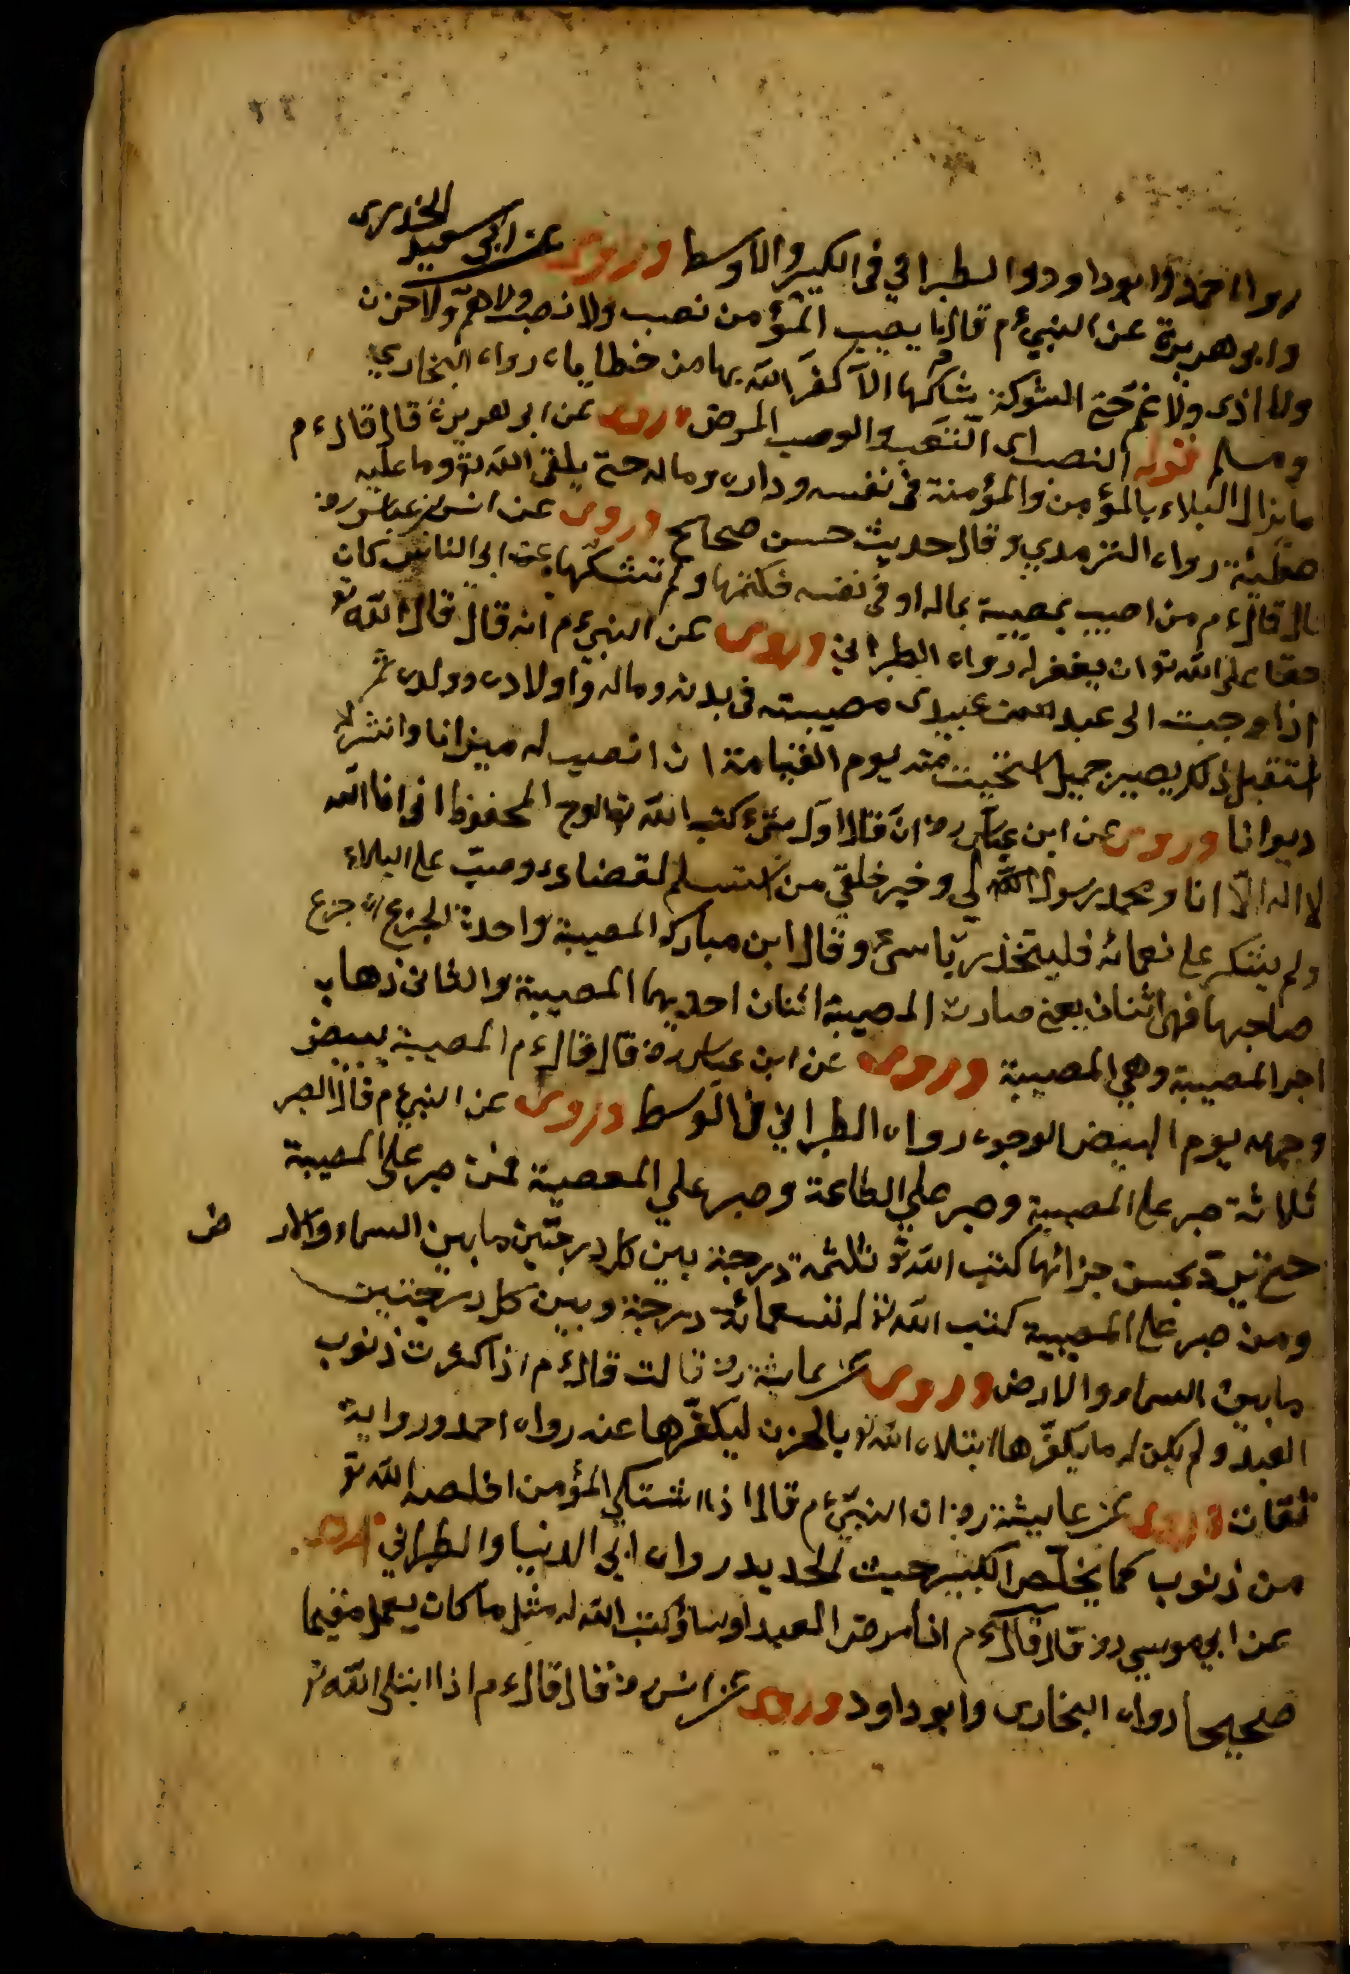 رواه احمد وابو داود والطبراني في الكبير والاوسط وروى عن ابى سعيد الخدرى
وابو هريرة عن النبيء م قال ما يصيب المؤمن نصب ولا نصب ولا هم ولا حزن
ولا اذى ولا غم حتى الشوكة يشاكها الا كفر الله بها من خطاياه رواه البخاري
ومسلم قوله النصب اى التعب والوصب المرض وروى عن ابو هريرة قال قال ء م
ما يزال البلاء بالمؤمن والمؤمنة في نفسه وداره وماله حتى يلقى الله تع وما عليه
خطيئة رواه الترمدي وقال حديث حسن صحاح وروى عن ابن عباس رض
قال قال ء م من اصيب بمصيبة بماله او في نفسه فكتمها ولم تشكها الى الناس كان
حقا على الله تو ان يغفر له رواه الطبراني وروى عن النبيء م انه قال قال الله تو
اذا وجبت الى عبد من عبيدى مصيبته في بدنه وماله واولاده وولدى ثم
استقبل ذلك بصبر جميل استحييت منه يوم القيامة ان انصب له ميزانا وانشر له
ديوانا وروى عن ابن عباس رض ان قال اول شىء كتب الله تو لوح المحفوظ اني انا الله
لا اله الا انا ومحمد رسول الله لي وخير خلقي من استسلم لقضاءى وصبر على البلاء
ولم يشكر على نعمائه فليتخذ ربا سىء وقال ابن مبارك المصيبة واحدة لجزع ان جزع
صاحبها فهى اثنان يعنى صارت المصيبة اثنان احديهما المصيبة والثانى ذهاب
اجر المصيبة وهي المصيبة وروى عن ابن عباس رض قال قال ء م المصيبة يبيض
وجهه يوم البيض الوجوه رواه الطبراني في الوسط وروى عن النبيء م قال الصبر
ثلاثة صبر على المصيبة وصبر علي الطاعة وصبر علي المعصية فمن صبر على المصيبة
حتى يرد بحسن جزائها كتب الله تو ثلثمة درجة بين كل درجتين ما بين السماء والار ض
ومن صبر على المصيبة كتب الله تو له تسعمائة درجة وبين كل درجتين
ما بين السماء والارض وروى عن عايشة رض قالت قال ء م اذا كثرت ذنوب
العبد ولم يكن له ما يكفرها ابتلاه الله تو بالحزن ليكفرها عنه رواه احمد ورواية
ثقات وروى عن عايشة رض ان النبيء م قال اذا اشتكى المؤمن اخلصه الله تو
من ذنوب كما يخلص الكير حيث الحديد رواه ابي الدنيا والطبراني وروى
عن ابي موسي رض قال قال ء م اذا مرض العبد او سافر كتب الله له مثل ما كان يعمل مقيما
صحيحا رواه البخارى وابو داود وروى عن انس رض قال قال ء م اذا ابتلى الله تو